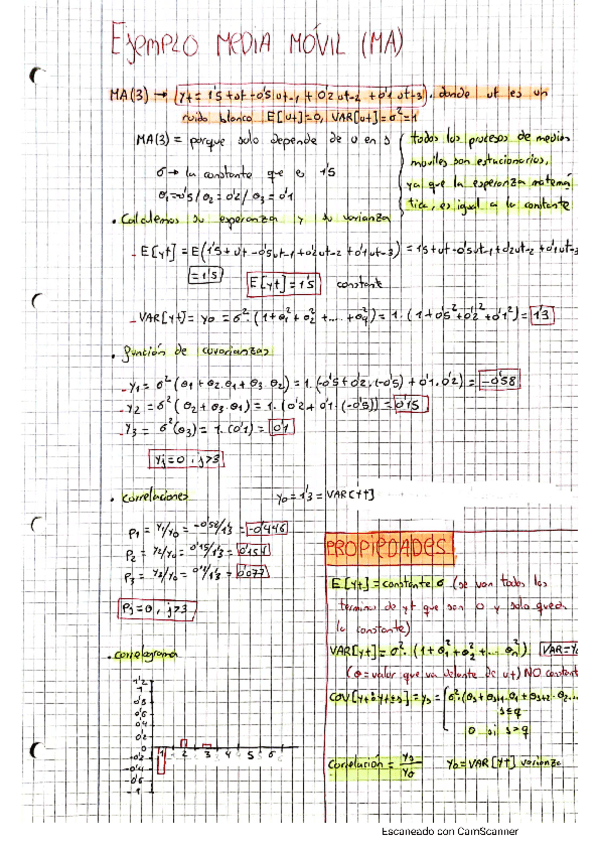 Ejemplo MEDIA MÓVIL (MA)
MA(3) → yt = 1'5 + ut - 0'5 ut-1 + 0'2 ut-2 + 0'1 ut-3. donde ut es un
ruido blanco E[ut]=0, VAR[ut]=σ²=1
MA(3) = porque solo depende de u en 3
todos los procesos de medias
móviles son estacionarios,
ya que la esperanza matemá
tica, es igual a la constante
σ → la constante que es 1'5
θ1=-0'5 / θ2 = 0'2 / θ3 = 0'1
• Calculemos su esperanza y su varianza
- E[yt] = E(1'5 + ut - 0'5ut-1 + 0'2ut-2 + 0'1ut-3) = 1'5 + ut - 0'5ut-1 + 0'2ut-2 + 0'1ut-3
= 1'5 E[yt] = 1'5 constante
- VAR[yt] = γ0 = σ² · (1 + θ1² + θ2² + ... + θq²) = 1 · (1 + 0'5² + 0'2² + 0'1²) = 1'3
• función de covarianzas
- γ1 = σ² (θ1 + θ2·θ1 + θ3·θ2) = 1 · (-0'5 + 0'2 · (-0'5) + 0'1 · 0'2) = -0'58
- γ2 = σ² (θ2 + θ3·θ1) = 1 · (0'2 + 0'1 · (-0'5)) = 0'15
- γ3 = σ² (θ3) = 1 · (0'1) = 0'1
γj = 0, j>3
• correlaciones γ0 = 1'3 = VAR[yt]
ρ1 = γ1/γ0 = -0'58/1'3 = -0'446
ρ2 = γ2/γ0 = 0'15/1'3 = 0'154
ρ3 = γ3/γ0 = 0'1/1'3 = 0'077
ρj = 0, j>3
• correlograma
1'2
1
0'8
0'6
0'4
0'2
0
-0'2
-0'4
-0'6
-0'8
-1
1 2 3 4 5 6
PROPIEDADES
E[yt] = constante σ (se van todos los
termino de yt que son 0 y solo queda
la constante)
VAR[yt] = σ² · (1 + θ1² + θ2² + ... θn²)
(θ = valor que va delante de ut) NO constant
= γs = σ² · (θs + θs+1 · θ1 + θs+2 · θ2 ...
s≤q
0 si s>q
Correlación = γs/γ0 γ0 = VAR[yt] varianza
Escaneado con CamScanner